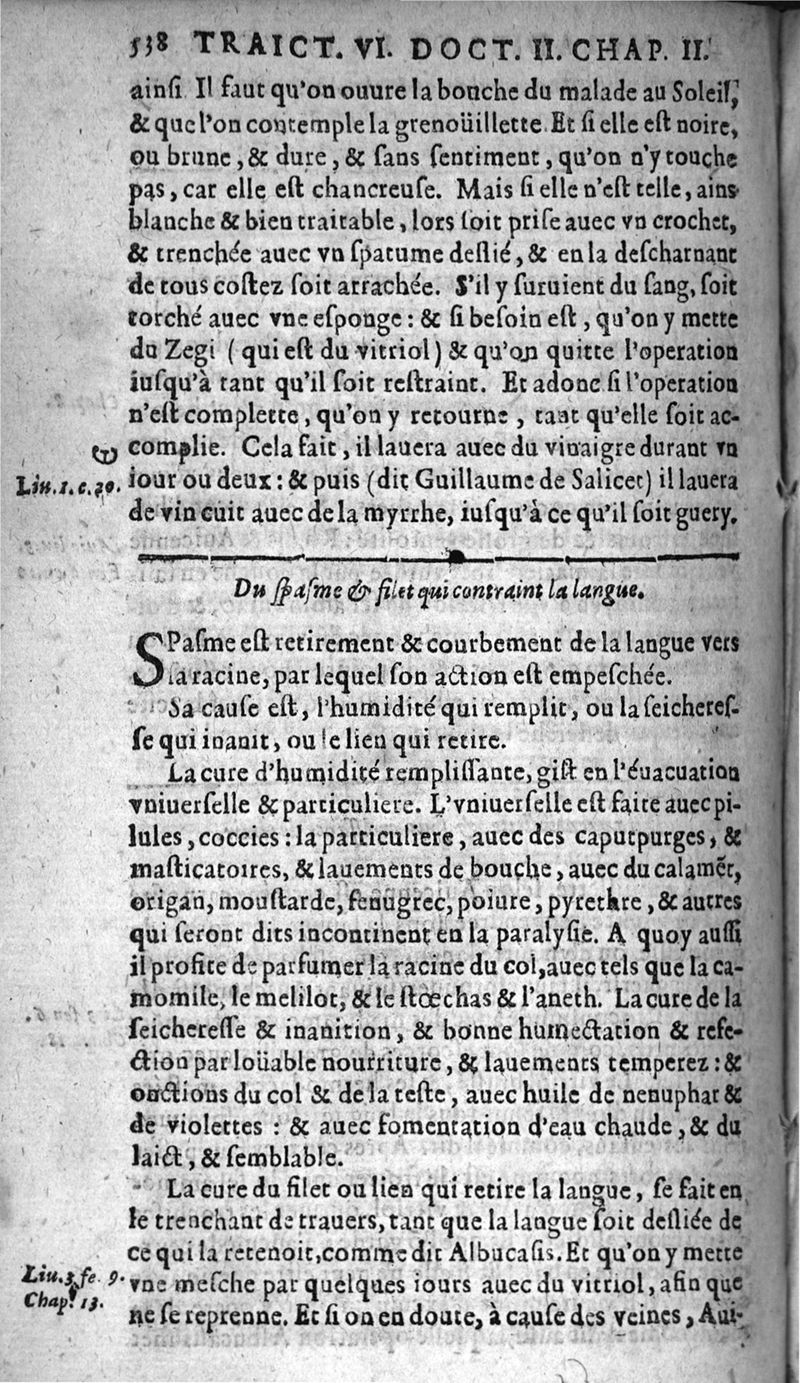 538 TRAICT. VI. DOCT. II. CHAP. II.
ainſi Il faut qu'on ouure la bouche du malade au Soleil,
& que l'on contemple la grenoüillette. Et ſi elle eſt noire,
ou brune, & dure, & ſans ſentiment, qu'on n'y touche
pas, car elle eſt chancreuſe. Mais ſi elle n'eſt telle, ains
blanche & bien traitable, lors ſoit priſe auec vn crochet,
& trenchée auec vn ſpatume deſlié, & en la deſcharnant
de tous coſtez ſoit arrachée. S'il y ſuruient du ſang, ſoit
torché auec vne eſponge: & ſi beſoin eſt, qu'on y mette
du Zegi (qui eſt du vitriol) & qu'on quitte l'operation
iuſqu'à tant qu'il ſoit reſtraint. Et adonc ſi l'operation
n'eſt complette, qu'on y retourne, tant qu'elle ſoit ac-
complie. Cela fait, il lauera auec du vinaigre durant vn
Liu. 1. c. 20. iour ou deux: & puis (dit Guillaume de Salicet) il lauera
de vin cuit auec de la myrrhe, iuſqu'à ce qu'il ſoit guery.
Du ſpaſme & filet qui contraint la langue.
SPaſme eſt retirement & courbement de la langue vers
la racine, par lequel ſon action eſt empeſchée.
Sa cauſe eſt, l'humidité qui remplit, ou la ſeichereſ-
ſe qui inanit, ou le lien qui retire.
La cure d'humidité rempliſſante, giſt en l'éuacuation
vniuerſelle & particuliere. L'vniuerſelle eſt faite auec pi-
lules, coccies: la particuliere, auec des caputpurges, &
maſticatoires, & lauements de bouche, auec du calamẽt,
origan, mouſtarde, fenugrec, poiure, pyrethre, & autres
qui ſeront dits incontinent en la paralyſie. A quoy auſſi
il profite de parfumer la racine du col, auec tels que la ca-
momile, le melilot, & le ſtœchas & l'aneth. La cure de la
ſeichereſſe & inanition, & bonne humectation & refe-
ction par loüable nourriture, & lauements temperez: &
onctions du col & de la teſte, auec huile de nenuphar &
de violettes: & auec fomentation d'eau chaude, & du
laict, & ſemblable.
La cure du filet ou lien qui retire la langue, ſe fait en
le trenchant de trauers, tant que la langue ſoit deſliée de
ce qui la retenoit, comme dit Albucaſis. Et qu'on y mette
Liu. 3. fe 9. vne meſche par quelques iours auec du vitriol, afin que
Chap. 13. ne ſe reprenne. Et ſi on en doute, à cauſe des veines, Aui-